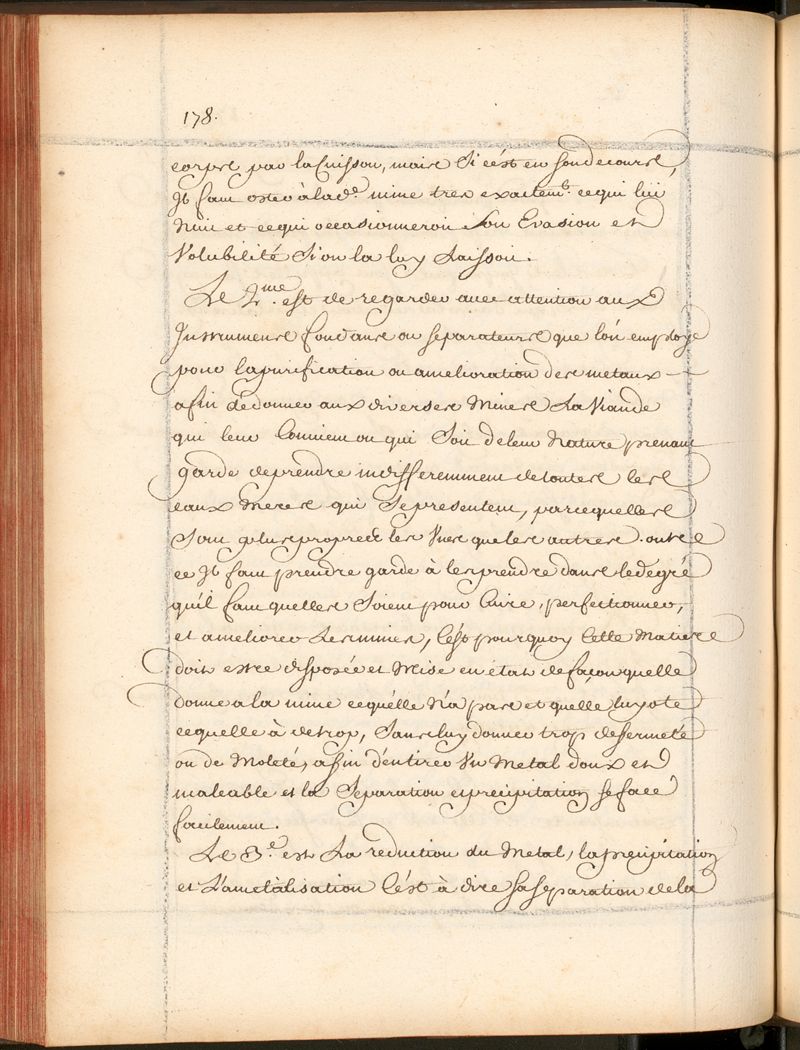 178.
corps par la Cuisson, mais Si c'est en son decours,
Jl faut oster à lad.e mine tres exactem.t ce qui lui
Nuit et ce qui occasionneroit Son Evasion et
Volubilité Si on la luy Laissoit.
Le 2.me est de regarder avec attention aux
Jnstrumens fondans ou separateurs que lon employe
pour la purification ou amelioration des metaux
afin de donner aux diverses Mines La Viande
qui leur Convient ou qui Soit de leur Nature prenant
garde de prendre indifferemment de toutes les
eaux Meres qui Se presentent, parce quelles
Sont plus propres les Vnes que les autres. outre
ce Jl faut prendre garde à les prendre dans le degré
qu'il faut quelles Soient pour Cuire, perfectionner,
et ameliorer Les mines, C'est pourquoy Cette Matiere
doit estre disposée et Mise en état de façon quelle
donne a la mine ce qu'elle N'a pas et quelle luy ote
ce quelle à de trop, Sans luy donner trop de fermeté
ou de Moleté, afin d'en tirer Vn Metal doux et
maleable et la Separation et precipitation se face
facilement.
Le 3.e est La reduction du Metal, la precipitation
et L'ametalisation C'est à dire sa separation de la